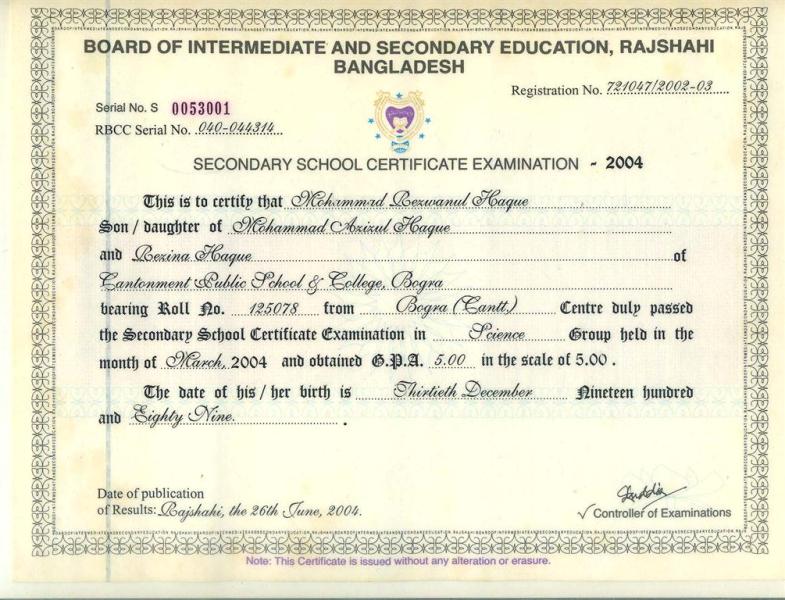 BOARD OF INTERMEDIATE AND SECONDARY EDUCATION, RAJSHAHI
BANGLADESH
Registration No. 721047/2002-03
Serial No. S 0053001
RBCC Serial No. 040-044314
SECONDARY SCHOOL CERTIFICATE EXAMINATION - 2004
This is to certify that Mohammad Rezwanul Haque
Son / daughter of Mohammad Azizul Haque
and Rezina Haque of
Cantonment Public School & College, Bogra
bearing Roll No. 125078 from Bogra (Cantt.) Centre duly passed
the Secondary School Certificate Examination in Science Group held in the
month of March, 2004 and obtained G.P.A. 5.00 in the scale of 5.00 .
The date of his / her birth is Thirtieth December Nineteen hundred
and Eighty Nine. .
Date of publication
of Results: Rajshahi, the 26th June, 2004.
Controller of Examinations
Note: This Certificate is issued without any alteration or erasure.